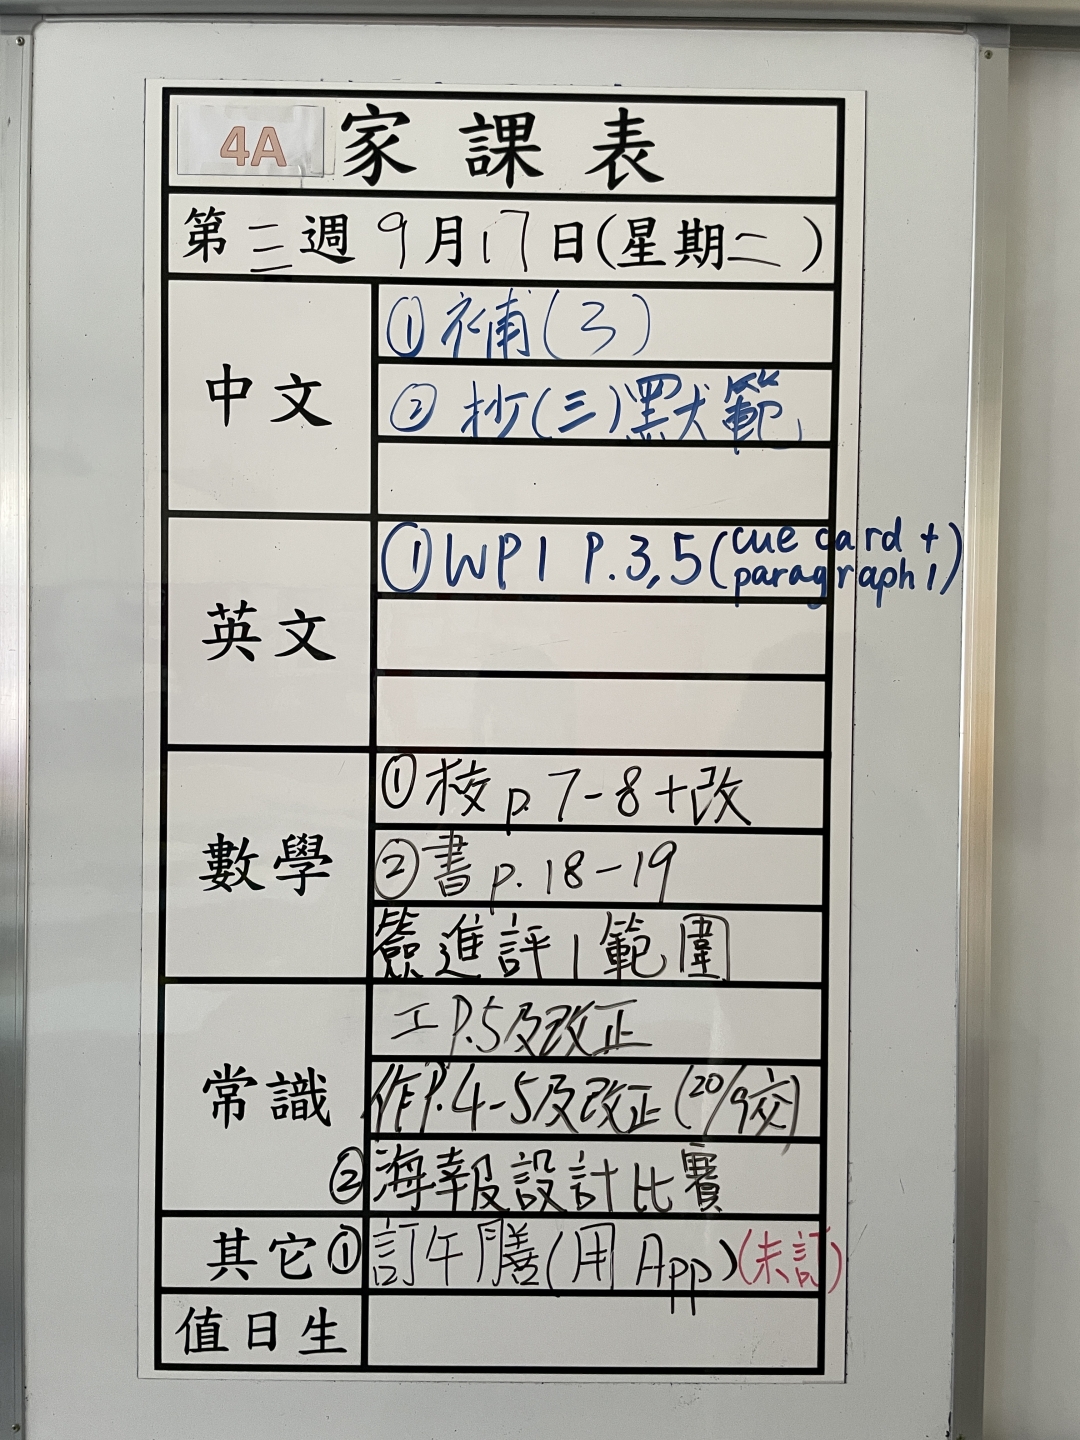 4A 家課表
第三週 9月17日(星期二)
中文
①補(3)
②抄(三)默範
英文
①WP1 P.3,5(cue card + paragraph 1)
數學
①校p.7-8+改
②書p.18-19
簽進評1範圍
常識
工P.5及改正
作P.4-5及改正(20/9交)
②海報設計比賽
其它
①訂午膳(用App)(未訂)
值日生